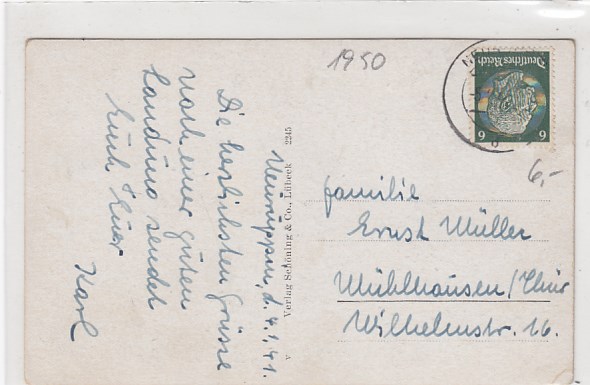 1950
NEU
Deutsches Reich
6 6
6,-
Neuruppin, d. 4.1.41.
Die herzlichsten Grüsse
nach einer guten
Landung sendet
Euch Euer
Karl
Verlag Schöning & Co., Lübeck 2245
v
Familie
Ernst Müller
Mühlhausen/Thür
Wilhelmstr. 16.